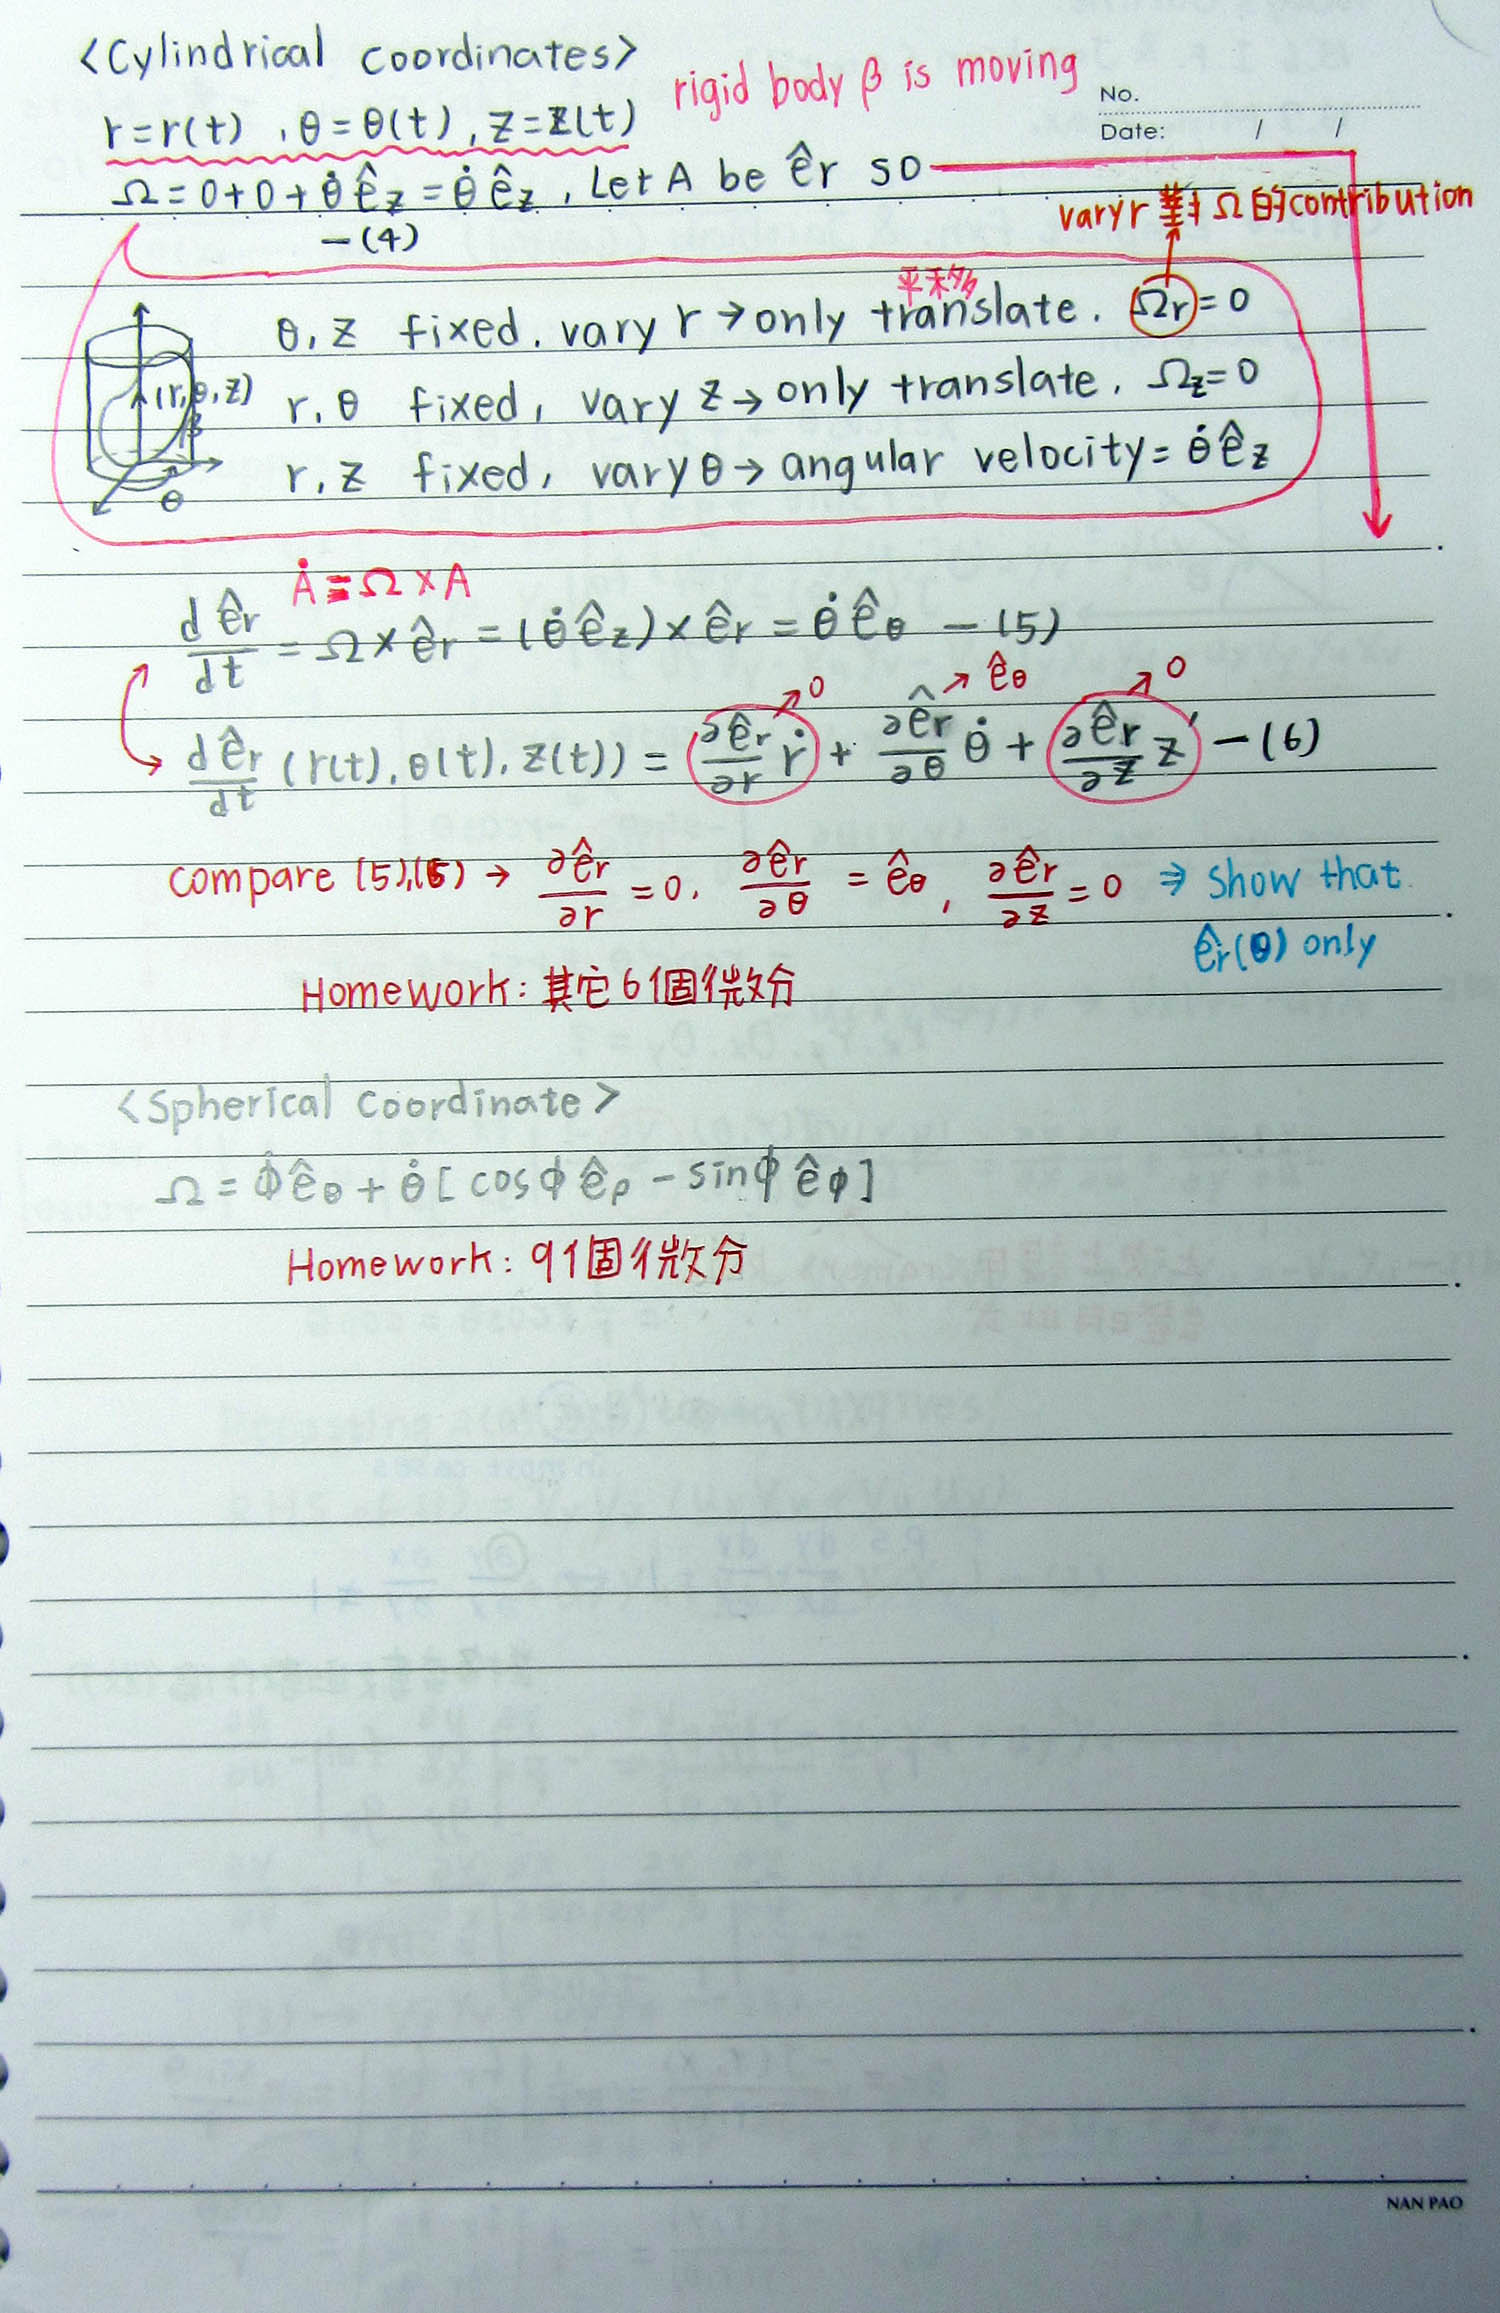 <Cylindrical coordinates>
rigid body β is moving
No.
Date: / /
r=r(t), θ=θ(t), z=z(t)
Ω=0+0+θ̇ê_z=θ̇ê_z, Let A be ê_r so
-(4)
vary r 對Ω的contribution
平移
θ, z fixed. vary r→only translate. Ω_r=0
r, θ fixed, vary z→only translate. Ω_z=0
r, z fixed, vary θ→angular velocity=θ̇ê_z
(r,θ,z)
β
θ
Ȧ=Ω×A
dê_r/dt = Ω×ê_r = (θ̇ê_z)×ê_r = θ̇ê_θ -(5)
↗0 ↗ê_θ ↗0
dê_r/dt (r(t),θ(t),z(t)) = ∂ê_r/∂r ṙ + ∂ê_r/∂θ θ̇ + ∂ê_r/∂z z' -(6)
compare (5),(6) → ∂ê_r/∂r = 0, ∂ê_r/∂θ = ê_θ, ∂ê_r/∂z = 0 ⇒ show that
ê_r(θ) only
Homework: 其它6個微分
<Spherical Coordinate>
Ω = ϕ̇ê_θ + θ̇[cosϕ ê_ρ - sinϕ ê_ϕ]
Homework: 9個微分
NAN PAO